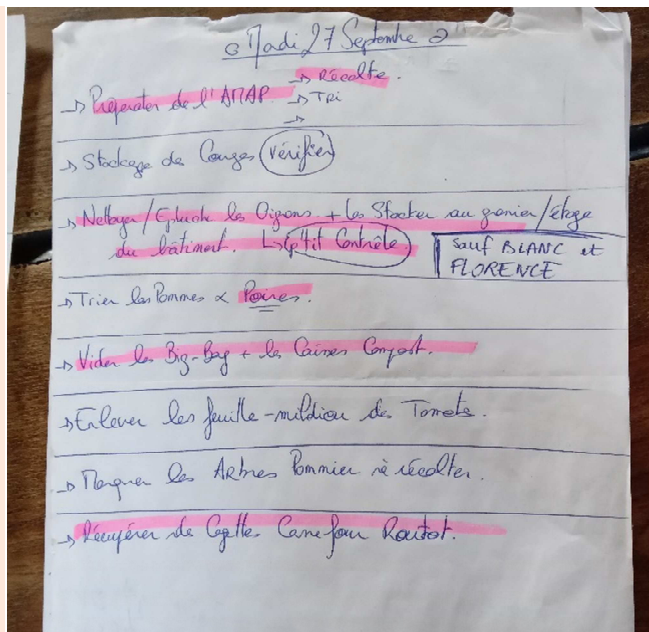 Mardi 27 Septembre
→ Préparation de l'AMAP → Récolte.
→ Tri
→
→ Stockage de Courges (vérifier)
→ Nettoyer/Eplucher les Oignons + les Stocker au grenier/étage
du bâtiment. ↳ (p'tit Contrôle)
Sauf BLANC et
FLORENCE
→ Trier les Pommes & Poires.
→ Vider les Big-Bag + les Caisses Compost.
→ Enlever les feuille-mildiou des Tomates.
→ Marquer les Arbres Pommier à récolter.
→ Récupérer de Cagettes Carrefour Routot.